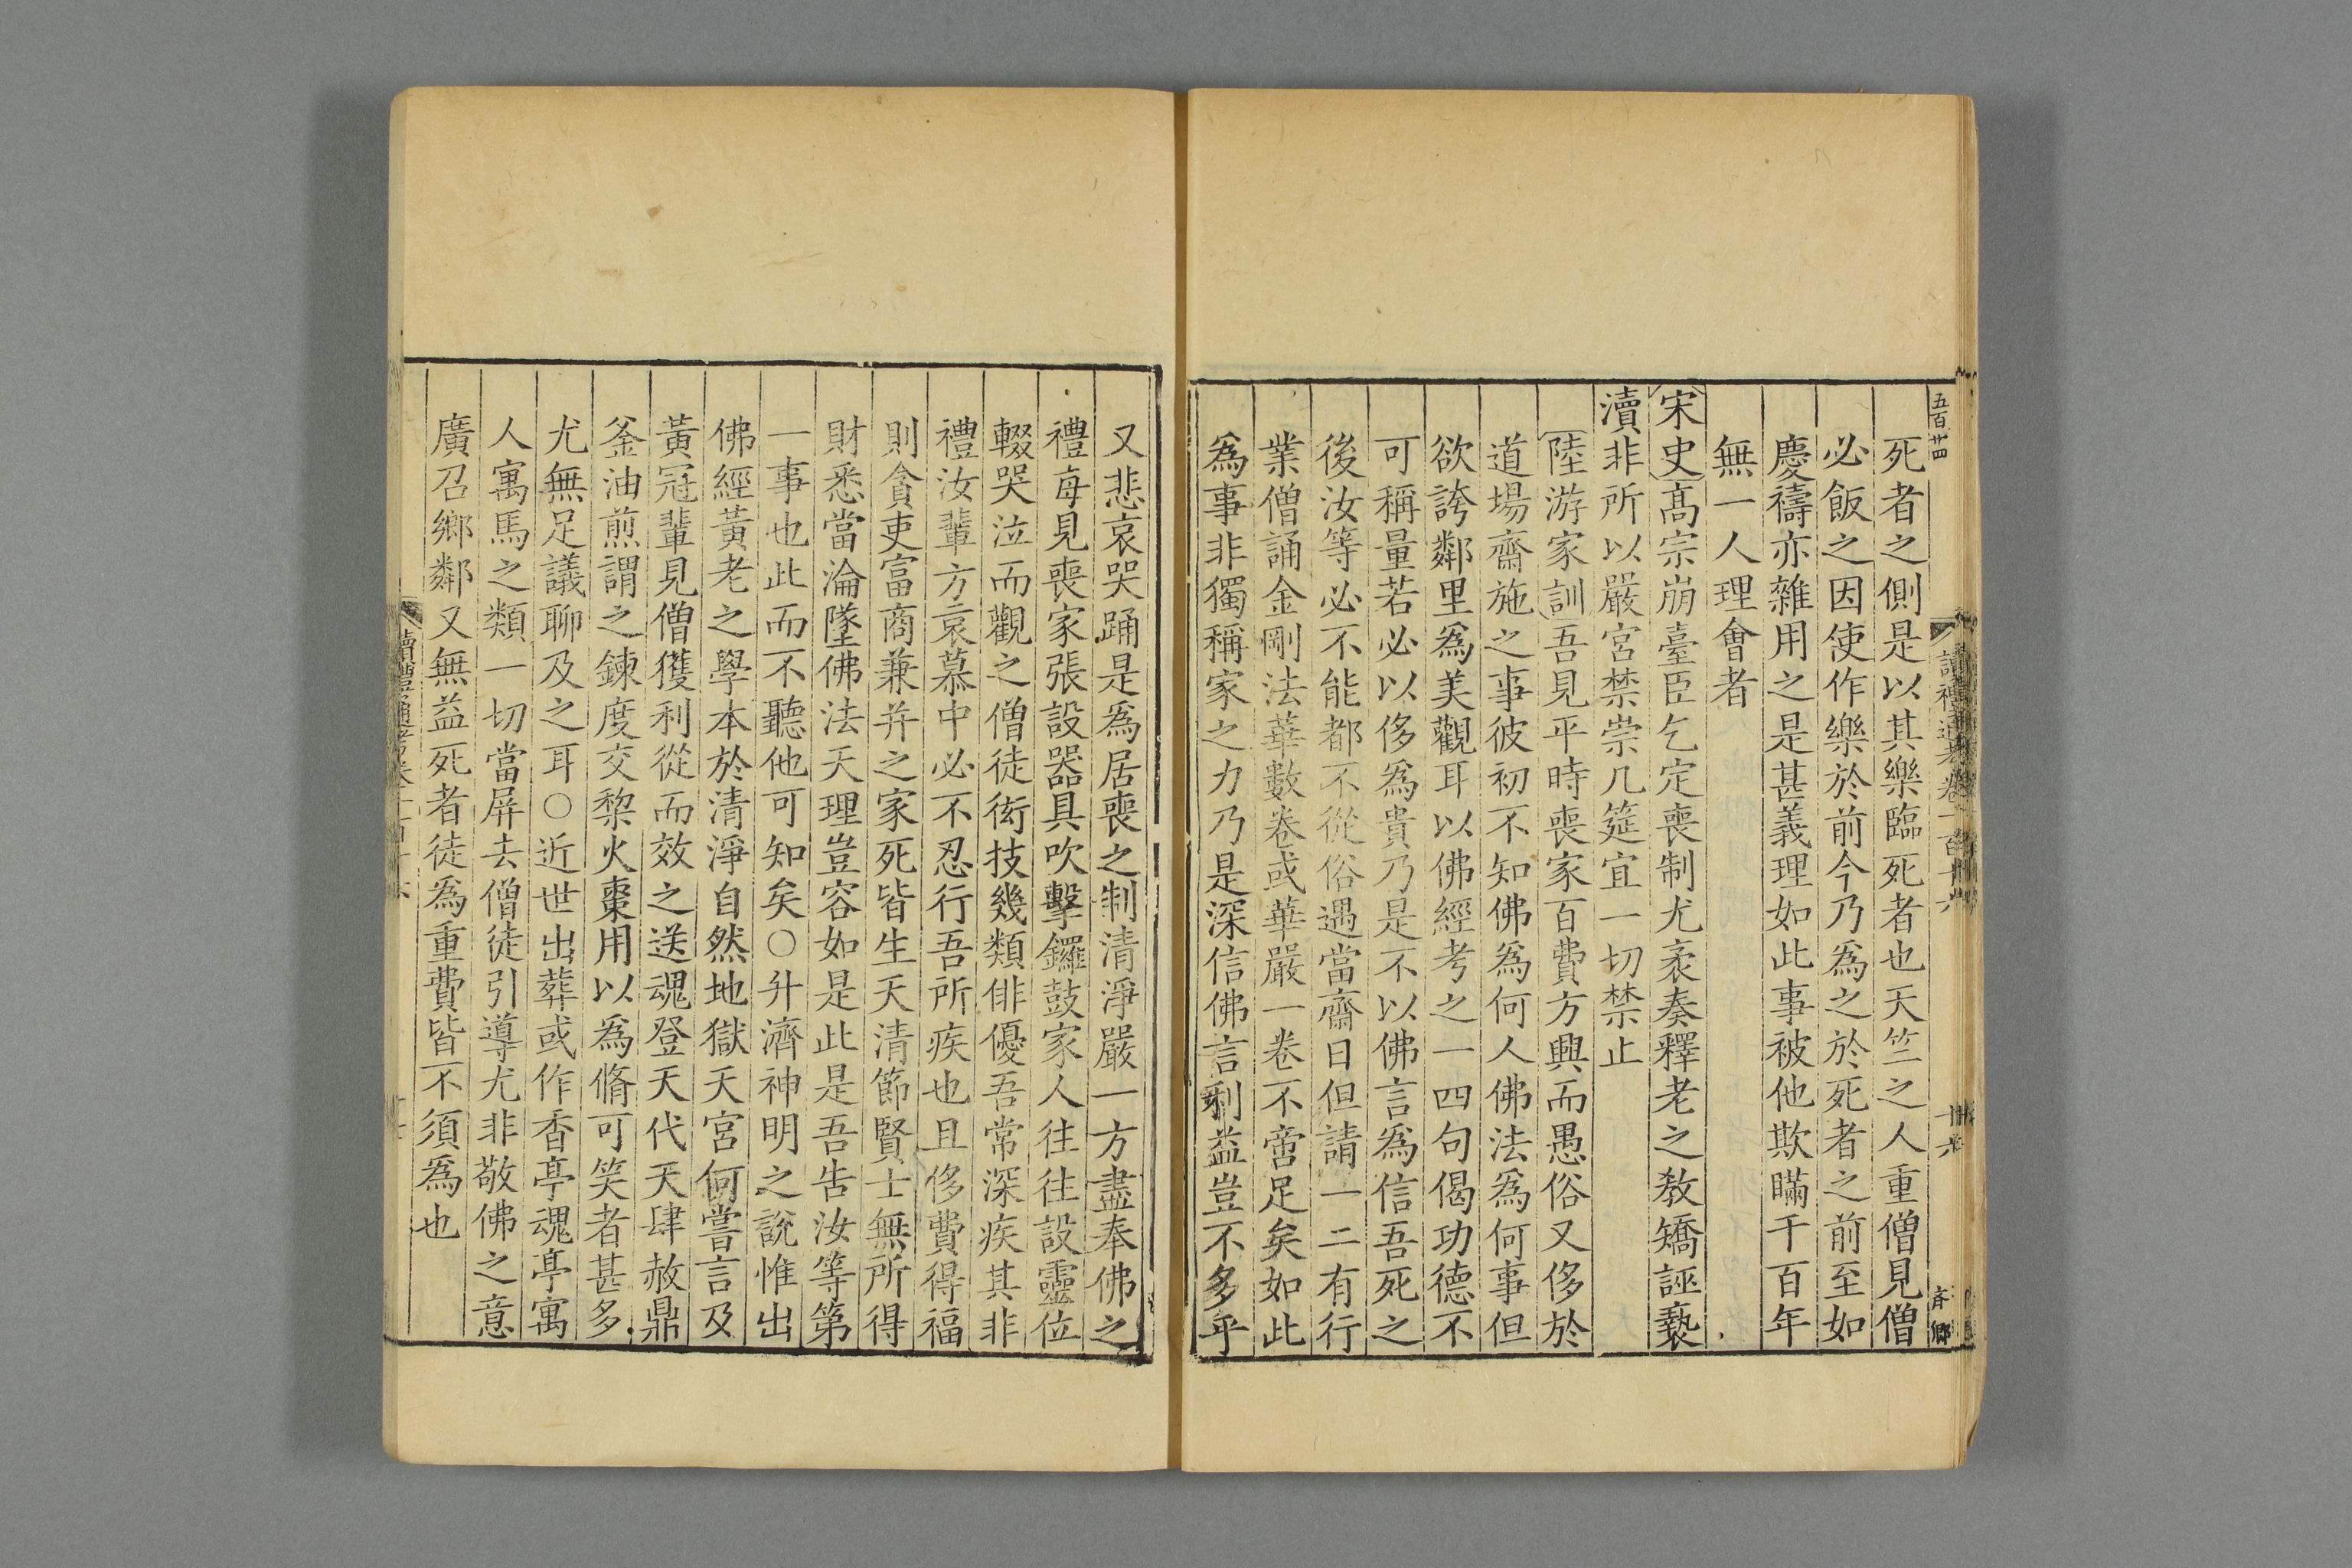 五百廿四
讀禮通考卷一百十六
死者之側是以其樂臨死者也天竺之人重僧見僧
必飯之因使作樂於前今乃爲之於死者之前至如
慶禱亦雜用之是甚義理如此事被他欺瞞千百年
無一人理會者
宋史高宗崩臺臣乞定喪制尤袤奏釋老之敎矯誣褻
瀆非所以嚴宮禁崇几筵宜一切禁止
陸游家訓吾見平時喪家百費方興而愚俗又侈於
道場齋施之事彼初不知佛爲何人佛法爲何事但
欲誇鄰里爲美觀耳以佛經考之一四句偈功德不
可稱量若必以侈爲貴乃是不以佛言爲信吾死之
後汝等必不能都不從俗遇當齋日但請一二有行
業僧誦金剛法華數卷或華嚴一卷不啻足矣如此
爲事非獨稱家之力乃是深信佛言利益豈不多乎
又悲哀哭踊是爲居喪之制清淨嚴一方盡奉佛之
禮每見喪家張設器具吹擊鑼鼓家人往往設靈位
輟哭泣而觀之僧徒衒技幾類俳優吾常深疾其非
禮汝輩方哀慕中必不忍行吾所疾也且侈費得福
則貪吏富商兼并之家死皆生天清節賢士無所得
財悉當淪墜佛法天理豈容如是此是吾告汝等第
一事也此而不聽他可知矣○升濟神明之說惟出
佛經黃老之學本於清淨自然地獄天宮何嘗言及
黃冠輩見僧獲利從而效之送魂登天代天肆赦鼎
釜油煎謂之鍊度交棃火棗用以爲脩可笑者甚多
尤無足議聊及之耳○近世出葬或作香亭魂亭寓
人寓馬之類一切當屏去僧徒引導尤非敬佛之意
廣召鄉鄰又無益死者徒爲重費皆不須爲也